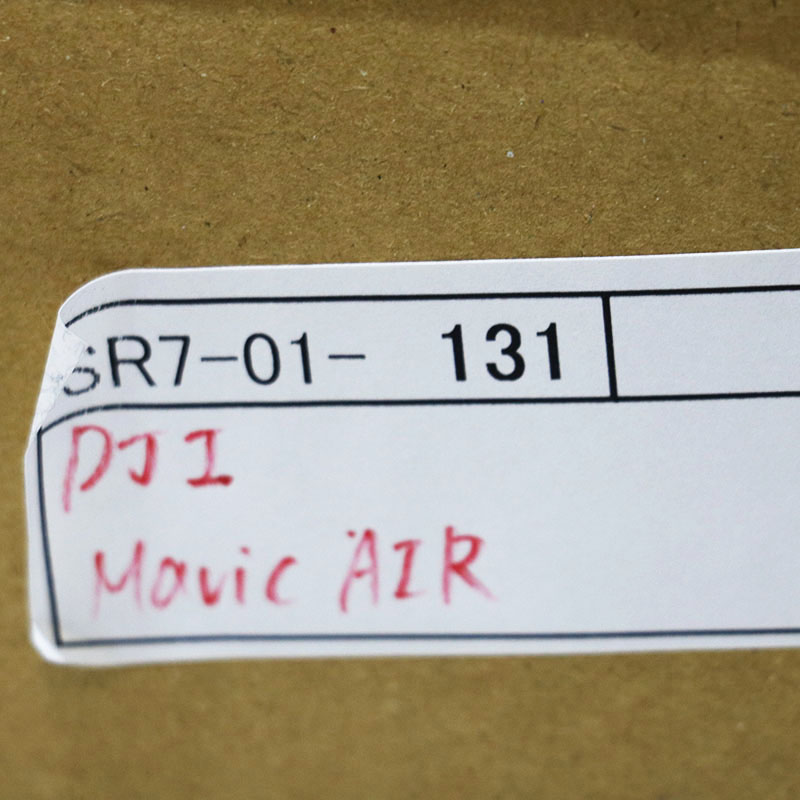 SR7-01- 131
DJI
Mavic AIR